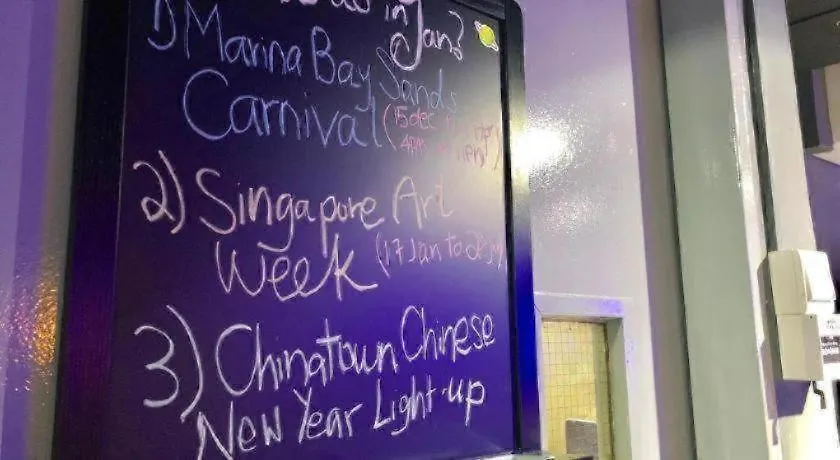 in Jan?
1) Marina Bay Sands
Carnival (15 dec
4pm
2) Singapore Art
Week (17 Jan to 26 Jan)
3) Chinatown Chinese
New Year Light-up